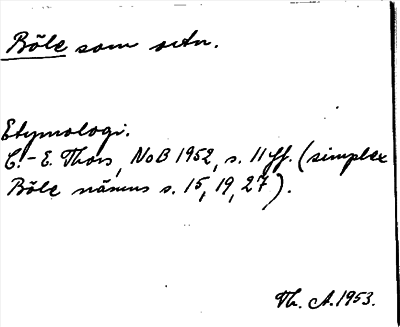 Böle som ortn.
Etymologi.
C.-E. Thors, NoB 1952, s. 11 ff. (simplex
Böle nämns s. 15, 19, 27).
Th. A. 1953.